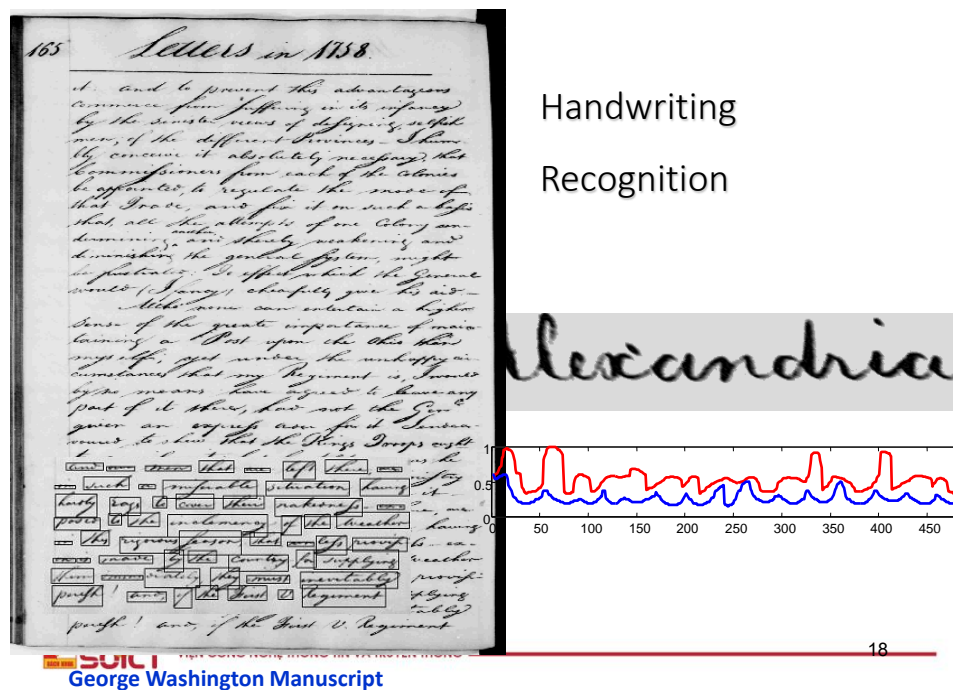 165 Letters in 1758.
it. and to prevent this advantageous
commerce from suffering in its infancy
by the sinister views of designing, selfish
men, of the different Provinces - I hum-
bly conceive it absolutely necessary that
Commissioners from each of the Colonies
be appointed, to regulate the mode of
that Trade, and fix it on such a basis
that, all the attempts of one Colony un-
another,
dermining and thereby weakening and
diminishing the general System, might
be frustrated. To effect which the General
would (I fancy) chearfully give his aid -
none can entertain a higher
sense of the great importance of main-
taining a Post upon the Ohio than
myself; yet under the unhappy cir-
cumstances that my Regiment is, I would
by no means have agreed to leave any
part of it there, had not the Genl.
given an express order for it. I endea-
voured to shew that the Kings Troops ought
and men that are left there
such miserable situation having
hardly rags to cover their nakedness
posed to the inclemency of the weather
this rigorous season that less provis
made by the country for supplying
them they must inevitably
perish! and, if the First V. Regiment
perish! and, if the First V. Regiment
Handwriting
Recognition
Alexandria
1
0.5
0
0 50 100 150 200 250 300 350 400 450
18
SOICT VIỆN CÔNG NGHỆ THÔNG TIN VÀ TRUYỀN THÔNG
George Washington Manuscript